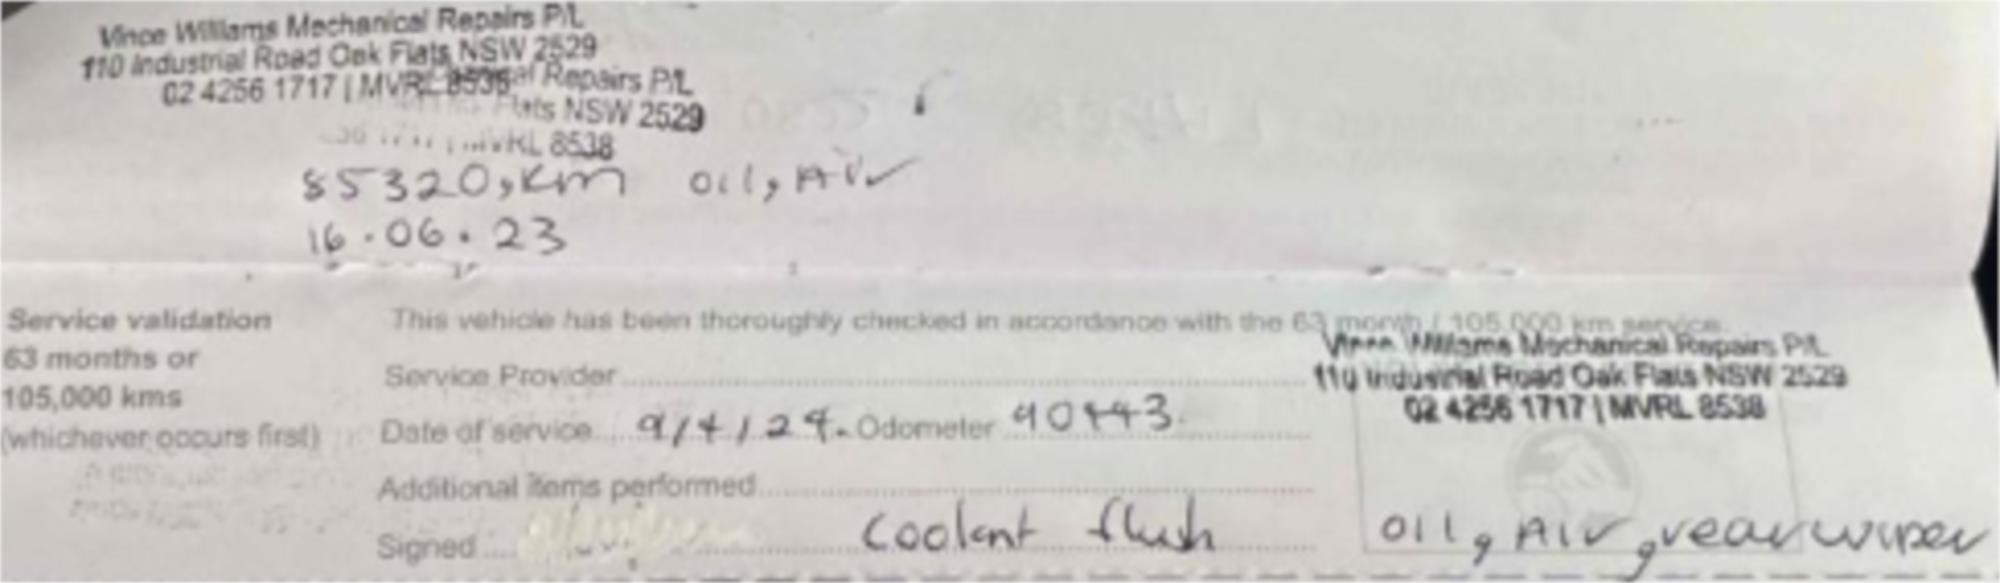 Vince Williams Mechanical Repairs P/L
110 Industrial Road Oak Flats NSW 2529
02 4256 1717 | MVRL 8538
Repairs P/L
NSW 2529
MVRL 8538
85320,km oil, Air
16.06.23
Service validation
63 months or
105,000 kms
(whichever occurs first)
This vehicle has been thoroughly checked in accordance with the 63 month / 105,000 km service.
Vince Williams Mechanical Repairs P/L
110 Industrial Road Oak Flats NSW 2529
02 4256 1717 | MVRL 8538
Service Provider
Date of service 9/4/24. Odometer 90443
Additional items performed
Signed coolant flush
oil, Air, rear wiper